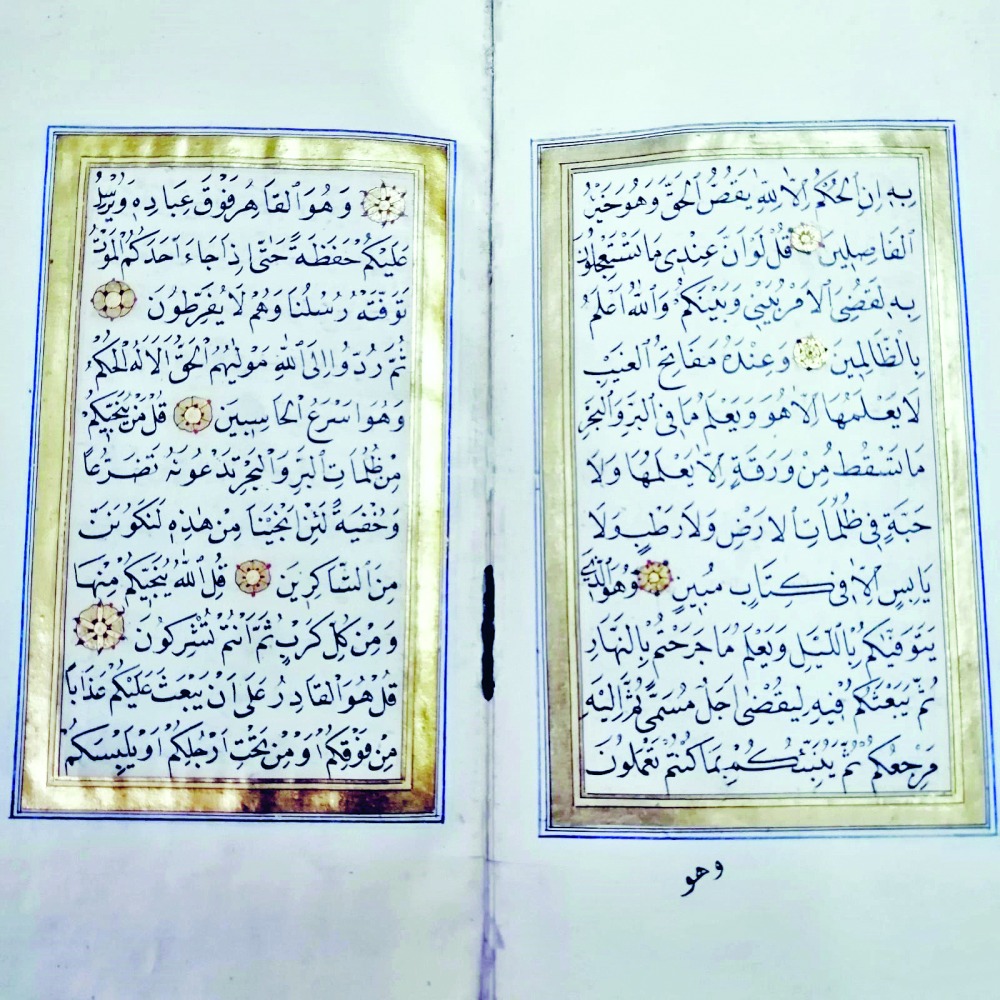 بِهِ اِنِ الْحُكْمُ اِلَّا لِلّٰهِ يَقُصُّ الْحَقَّ وَهُوَ خَيْرُ
الْفَاصِلِينَ قُلْ لَوْ اَنَّ عِنْدِى مَا تَسْتَعْجِلُونَ
بِهِ لَقُضِىَ الْاَمْرُ بَيْنِى وَبَيْنَكُمْ وَاللّٰهُ اَعْلَمُ
بِالظَّالِمِينَ وَعِنْدَهُ مَفَاتِحُ الْغَيْبِ
لَا يَعْلَمُهَا اِلَّا هُوَ وَيَعْلَمُ مَا فِى الْبَرِّ وَالْبَحْرِ
مَا تَسْقُطُ مِنْ وَرَقَةٍ اِلَّا يَعْلَمُهَا وَلَا
حَبَّةٍ فِى ظُلُمَاتِ الْاَرْضِ وَلَا رَطْبٍ وَلَا
يَابِسٍ اِلَّا فِى كِتَابٍ مُبِينٍ وَهُوَ الَّذِى
يَتَوَفّٰيكُمْ بِاللَّيْلِ وَيَعْلَمُ مَا جَرَحْتُمْ بِالنَّهَارِ
ثُمَّ يَبْعَثُكُمْ فِيهِ لِيُقْضٰى اَجَلٌ مُسَمًّى ثُمَّ اِلَيْهِ
مَرْجِعُكُمْ ثُمَّ يُنَبِّئُكُمْ بِمَا كُنْتُمْ تَعْمَلُونَ
وهو
وَهُوَ الْقَاهِرُ فَوْقَ عِبَادِهِ وَيُرْسِلُ
عَلَيْكُمْ حَفَظَةً حَتّٰى اِذَا جَاءَ اَحَدَكُمُ الْمَوْتُ
تَوَفَّتْهُ رُسُلُنَا وَهُمْ لَا يُفَرِّطُونَ
ثُمَّ رُدُّوا اِلَى اللّٰهِ مَوْلٰيهُمُ الْحَقِّ اَلَا لَهُ الْحُكْمُ
وَهُوَ اَسْرَعُ الْحَاسِبِينَ قُلْ مَنْ يُنَجِّيكُمْ
مِنْ ظُلُمَاتِ الْبَرِّ وَالْبَحْرِ تَدْعُونَهُ تَضَرُّعًا
وَخُفْيَةً لَئِنْ اَنْجَيْتَنَا مِنْ هٰذِهِ لَنَكُونَنَّ
مِنَ الشَّاكِرِينَ قُلِ اللّٰهُ يُنَجِّيكُمْ مِنْهَا
وَمِنْ كُلِّ كَرْبٍ ثُمَّ اَنْتُمْ تُشْرِكُونَ
قُلْ هُوَ الْقَادِرُ عَلٰى اَنْ يَبْعَثَ عَلَيْكُمْ عَذَابًا
مِنْ فَوْقِكُمْ اَوْ مِنْ تَحْتِ اَرْجُلِكُمْ اَوْ يَلْبِسَكُمْ